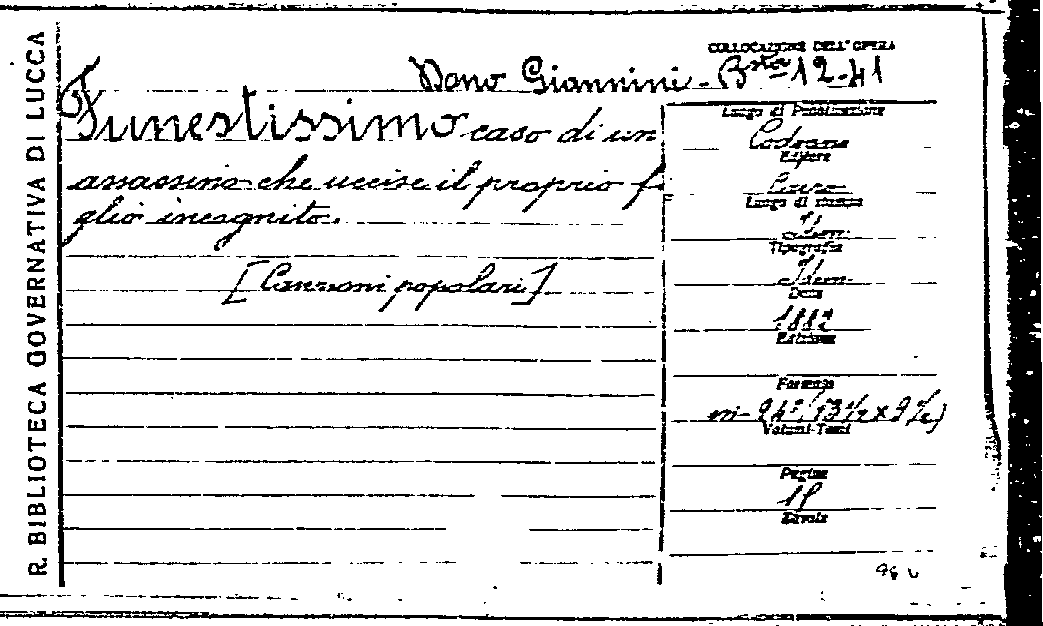 R. BIBLIOTECA GOVERNATIVA DI LUCCA
COLLOCAZIONE DELL'OPERA
Dono Giannini - Bsta 12-41
Funestissimo caso di un
assassino che uccise il proprio fi-
glio incognito.
[Canzoni popolari]
Luogo di Pubblicazione
Codogno
Editore
Cairo
Luogo di stampa
Id.
Tipografia
Idem.
Data
1882
Edizione
Formato
in-24° (13½ x 9½)
Volumi-Tomi
Pagine
Tavole